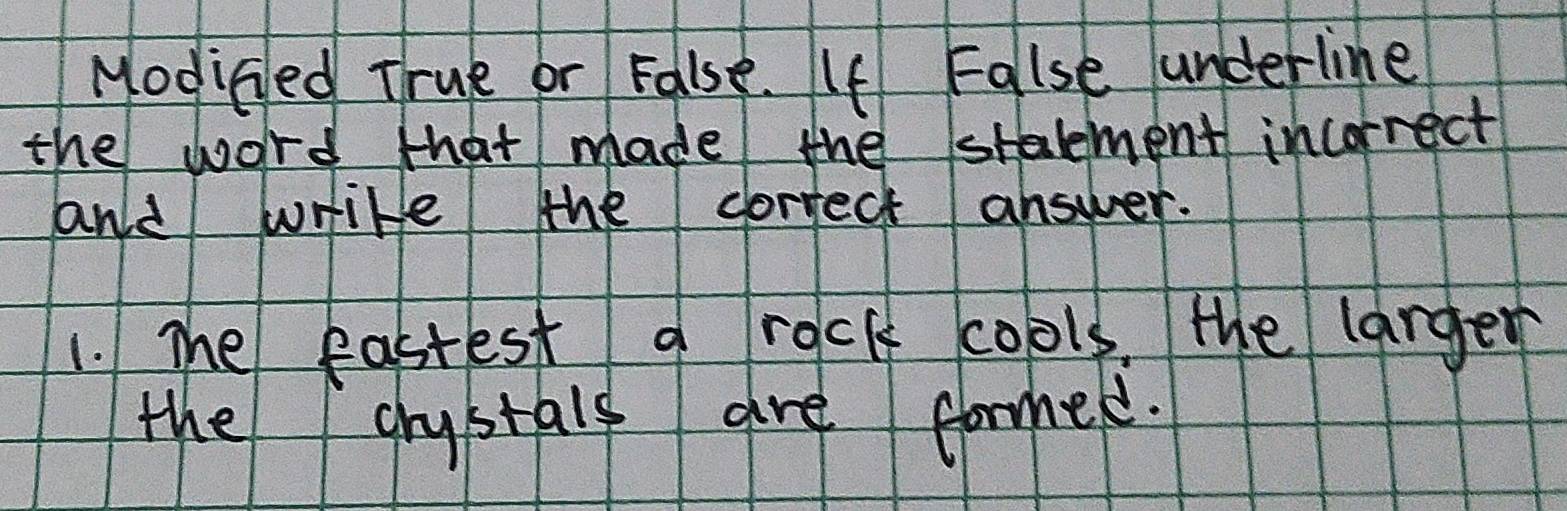 Modified True or False. If False underline
the word that made the statement incorrect
and write the correct answer.
1. The fastest a rock cools, the larger
the crystals are formed.